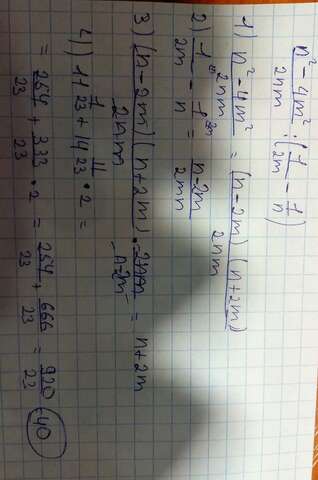 n²-4m²/2nm : (1/2m - 1/n)
1) n²-4m²/2nm = (n-2m)(n+2m)/2nm
2) 1/2m - 1/n = n-2m/2mn
3) (n-2m)(n+2m)/2nm · 2nm/n-2m = n+2m
4) 11 1/23 + 14 11/23 · 2 =
= 254/23 + 333/23 · 2 = 254/23 + 666/23 = 920/23 = 40